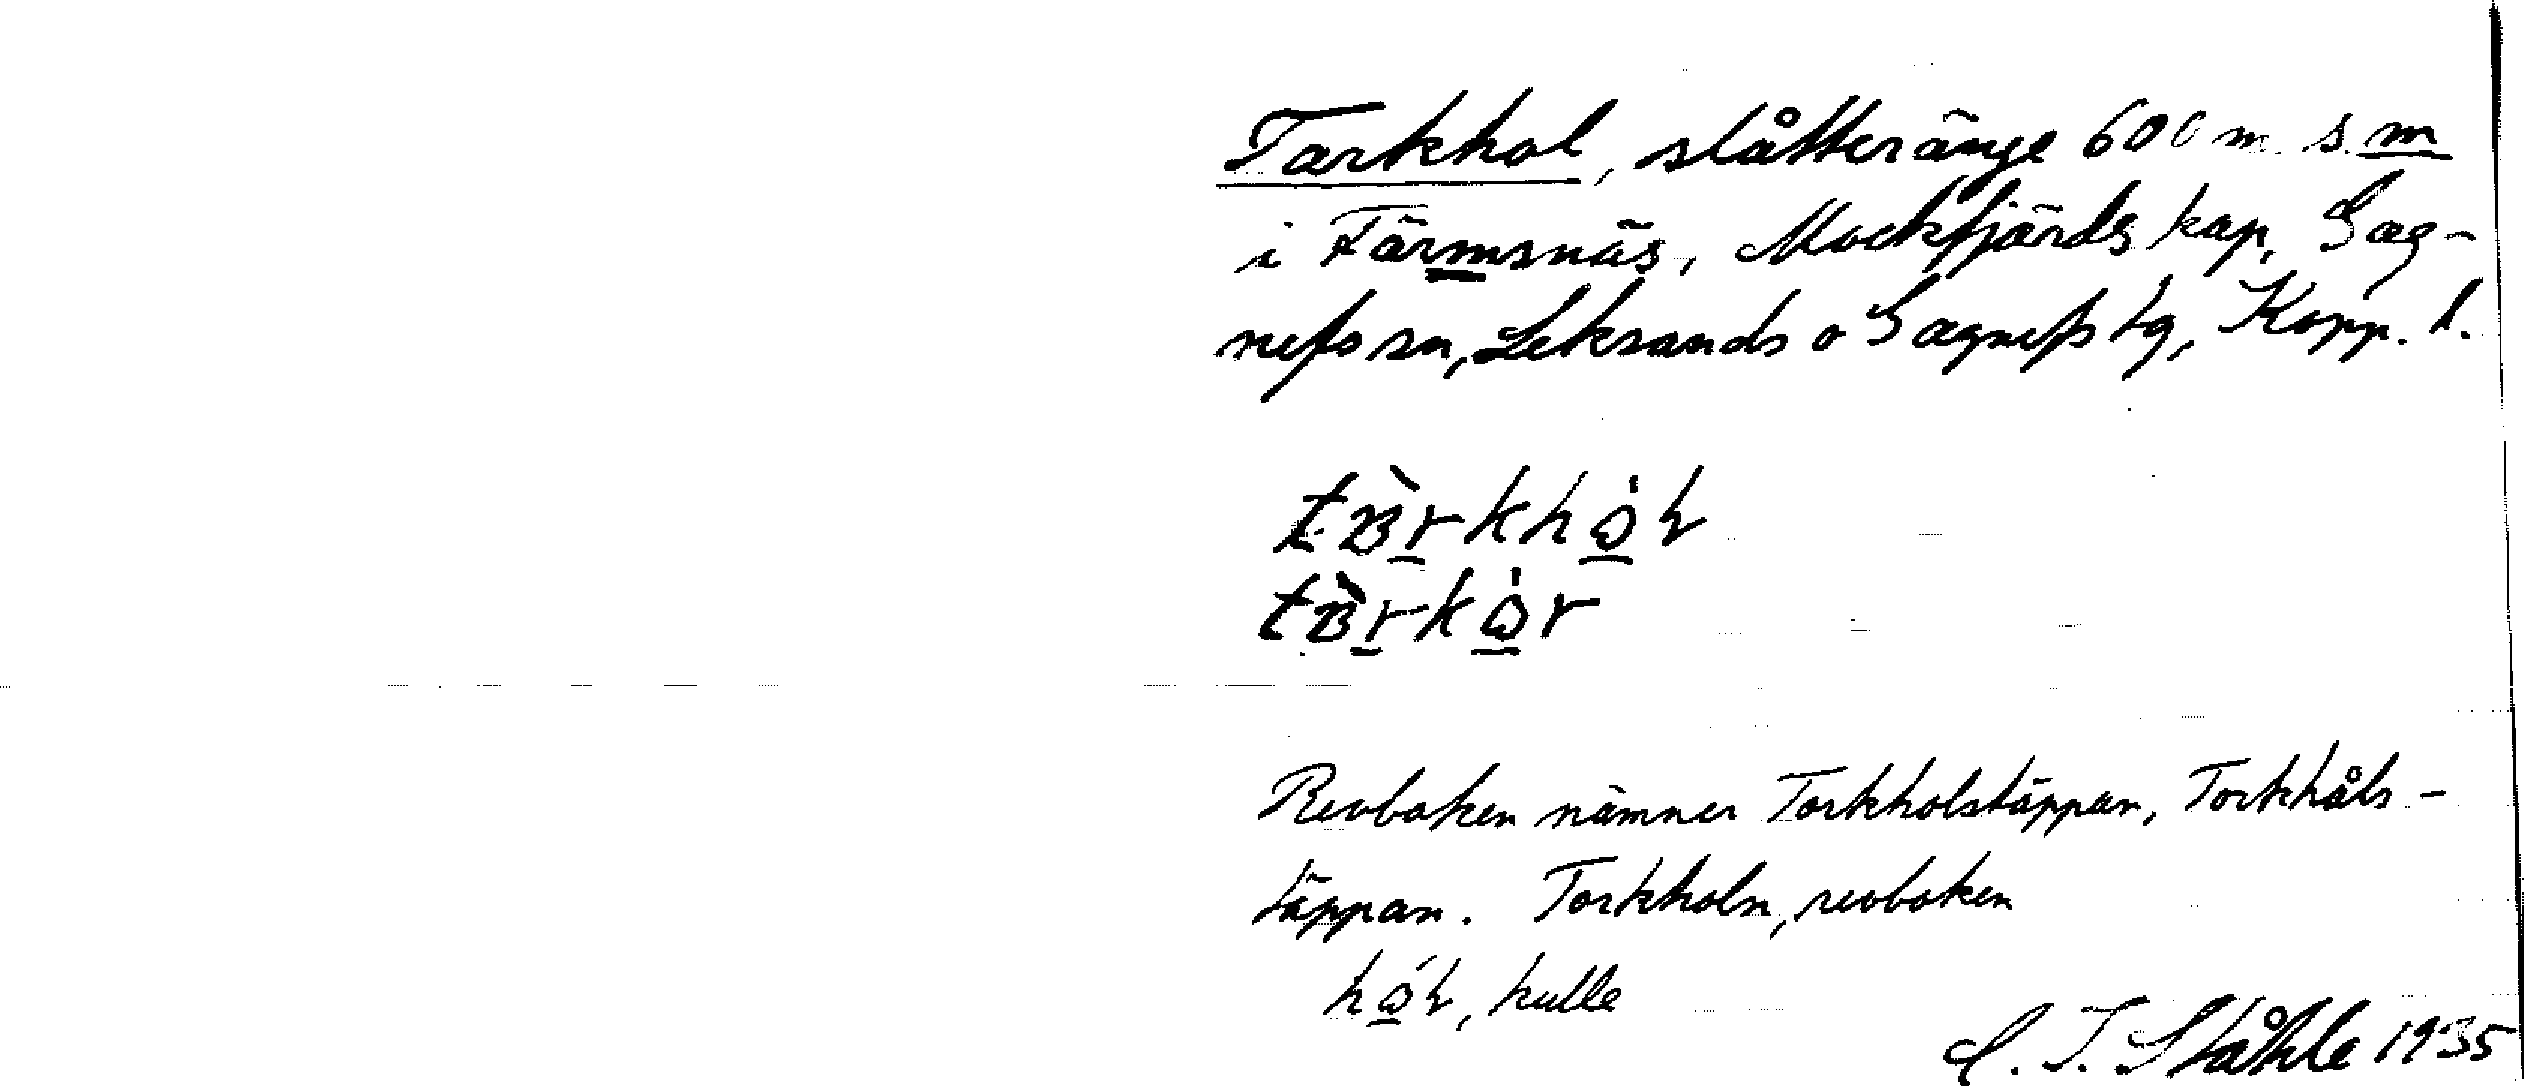 Torkhol, slåtteränge 600 m s m
i Färmsnäs, Mockfjärds kap, Gag-
nefs sn, Leksands o Gagnefs tg, Kopp. l.
Revboken nämner Torkholstäppan, Torkhåls-
täppan. Torkholn, revboken
kulle
C. I. Ståhle 1935